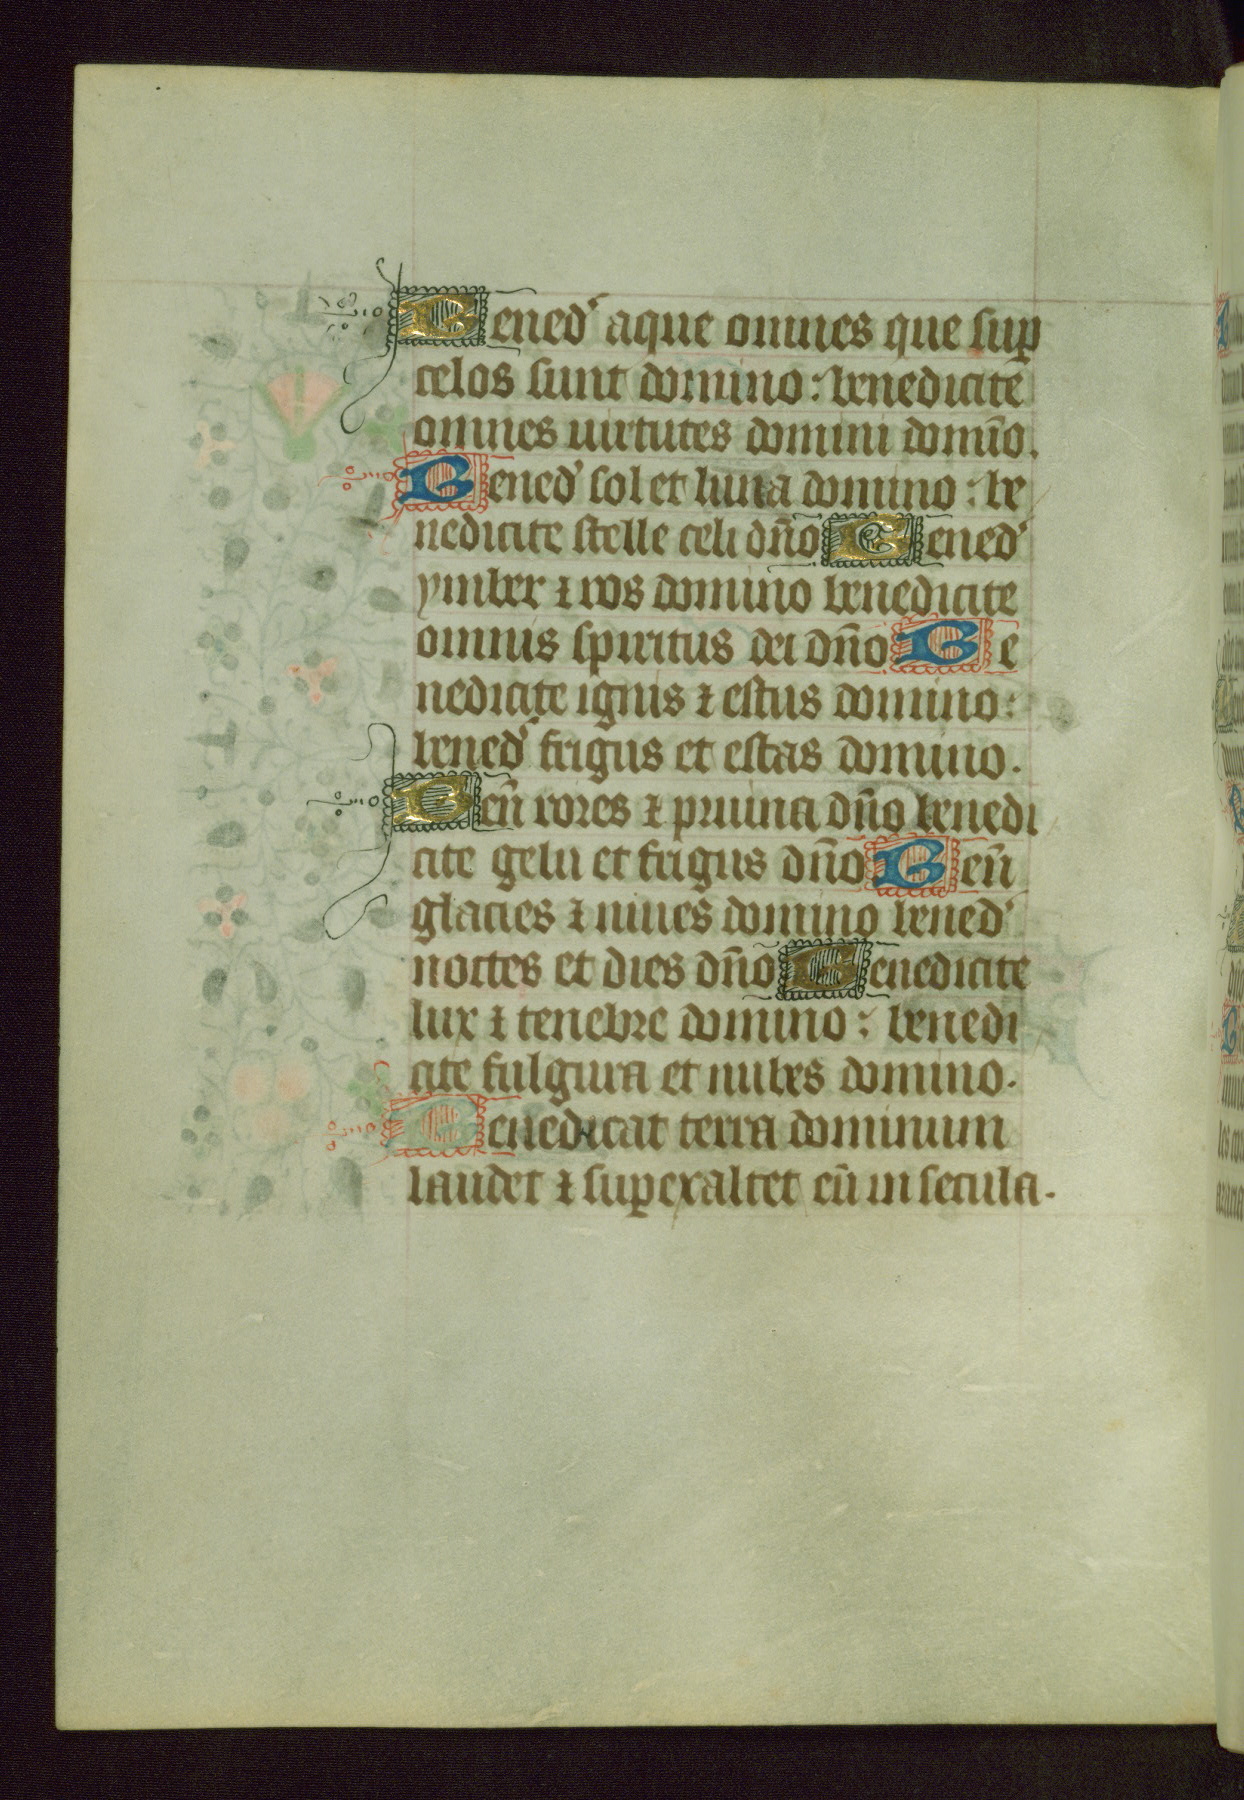 Bened' aque omnes que sup
celos sunt domino: benedicite
omnes uirtutes domini domīo.
Bened' sol et luna domino: be
nedicite stelle celi dn̄o Bened'
ymber ⁊ ros domino benedicite
omnis spiritus dei dn̄o Be
nedicite ignis ⁊ estus domino:
bened' frigus et estas domino.
Ben̄ rores ⁊ pruina dn̄o benedi
cite gelu et frigus dn̄o Ben̄
glacies ⁊ niues domino bened'
noctes et dies dn̄o Benedicite
lux ⁊ tenebre domino: benedi
cite fulgura et nubes domino.
Benedicat terra dominum
laudet ⁊ supexaltet eū in secula.